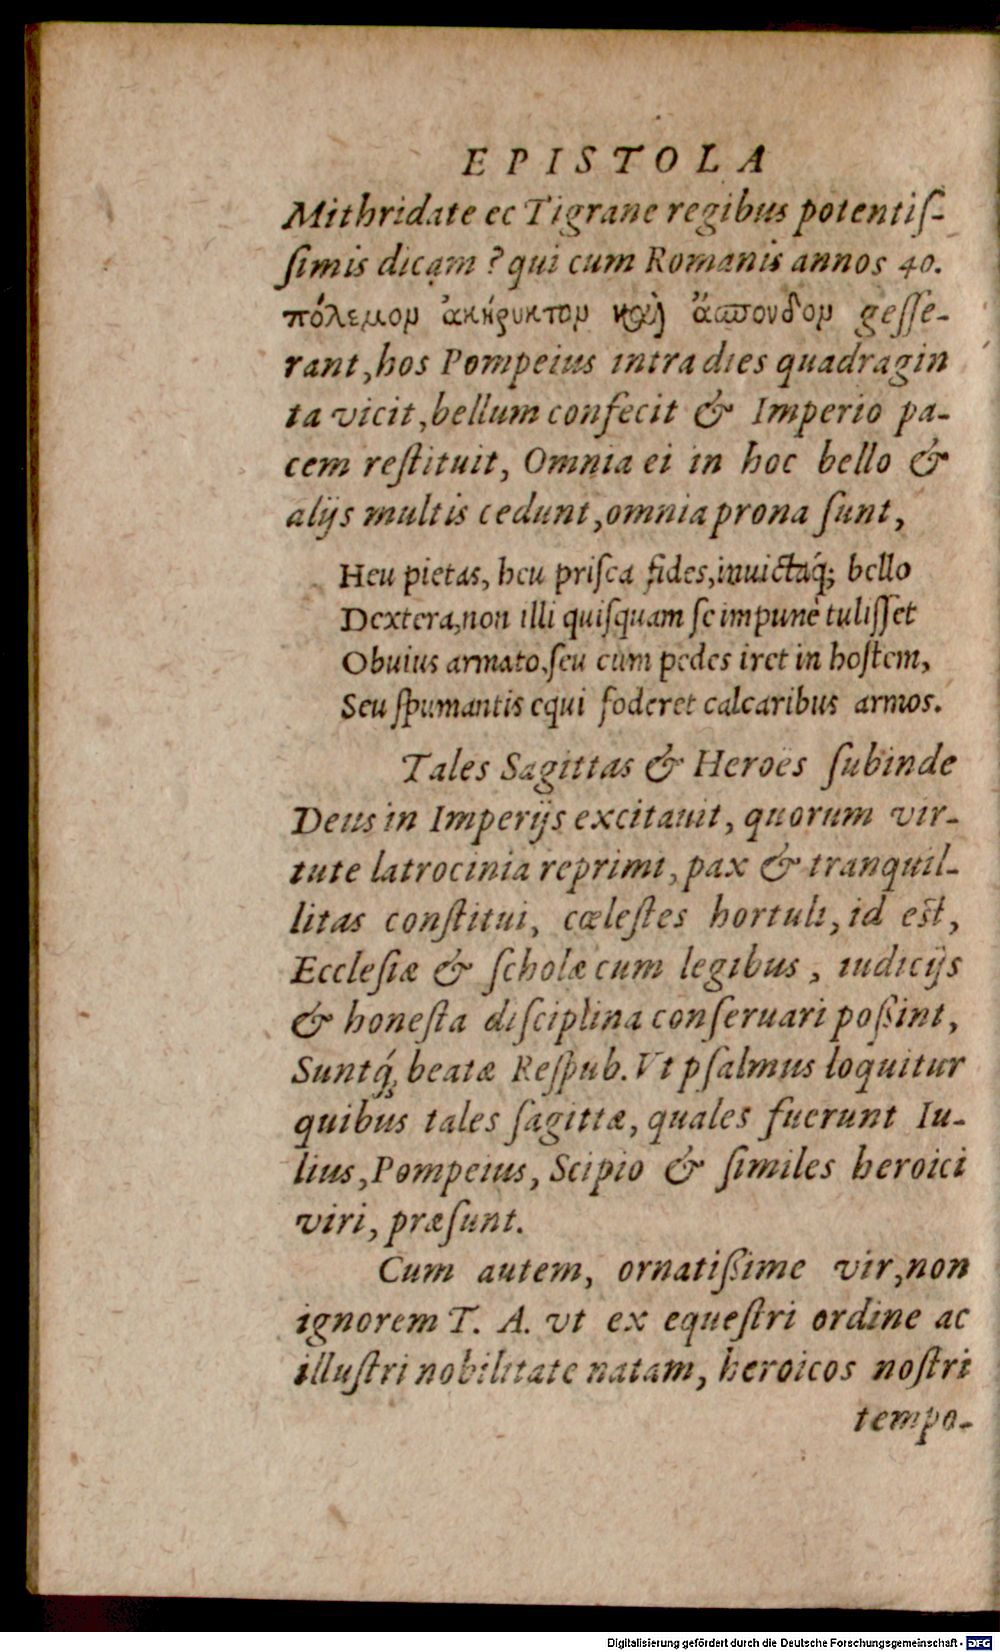 EPISTOLA
Mithridate ec Tigrane regibus potentiſ-
ſimis dicam ? qui cum Romanis annos 40.
πόλεμομ ἀκήρυκτομ καὶ ἄσπονδομ geſſe-
rant, hos Pompeius intra dies quadragin
ta vicit, bellum confecit & Imperio pa-
cem reſtituit, Omnia ei in hoc bello &
alijs multis cedunt, omnia prona ſunt,
Heu pietas, heu priſca fides, inuictaq́; bello
Dextera, non illi quiſquam ſe impunè tuliſſet
Obuius armato, ſeu cum pedes iret in hoſtem,
Seu ſpumantis equi foderet calcaribus armos.
Tales Sagittas & Heroes ſubinde
Deus in Imperijs excitauit, quorum vir-
tute latrocinia reprimi, pax & tranquil-
litas conſtitui, cœleſtes hortuli, id eſt,
Eccleſiæ & ſcholæ cum legibus, iudicijs
& honeſta diſciplina conſeruari poßint,
Suntq́; beatæ Reſpub. Vt pſalmus loquitur
quibus tales ſagittæ, quales fuerunt Iu-
lius, Pompeius, Scipio & ſimiles heroici
viri, præſunt.
Cum autem, ornatißime vir, non
ignorem T. A. vt ex equeſtri ordine ac
illuſtri nobilitate natam, heroicos noſtri
tempo-
Digitalisierung gefördert durch die Deutsche Forschungsgemeinschaft - DFG